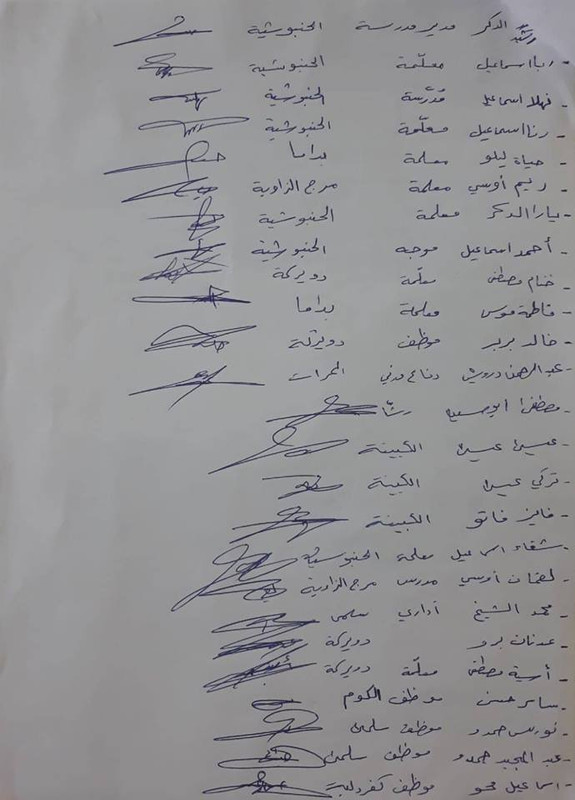 رشيد الدكر مدير مدرسة الجنبوشية
- ربا اسماعيل معلّمة الجنبوشية
- نهلا اسماعيل مُدرّسة الجنبوشية
- رنا اسماعيل معلّمة الجنبوشية
- حياة ليلو معلمة بداما
- ريم أوسي معلمة مرج الزاوية
- يارا الدكر معلمة الجنبوشية
- أحمد اسماعيل موجه الجنبوشية
- ختام مصطفى معلّمة دويركة
- فاطمة موسى معلمة بداما
- خالد بربر موظف دويركة
- عبد الرحمن درويش دفاع مدني
- مصطفى
- الكبينة
- تركي الكبينة
- فايز فاتو الكبينة
- شفاء اسماعيل معلمة الجنبوشية
- لقمان أوسي مدرس مرج الزاوية
- محمد الشيخ أداري سلمى
- عدنان برو دويركة
- أسية مصطفى معلّمة دويركة
- سامر حسن موظف الكوم
- نورس حمدو موظف سلمى
- عبد المجيد حمدو موظف سلمى
- اسماعيل موظف